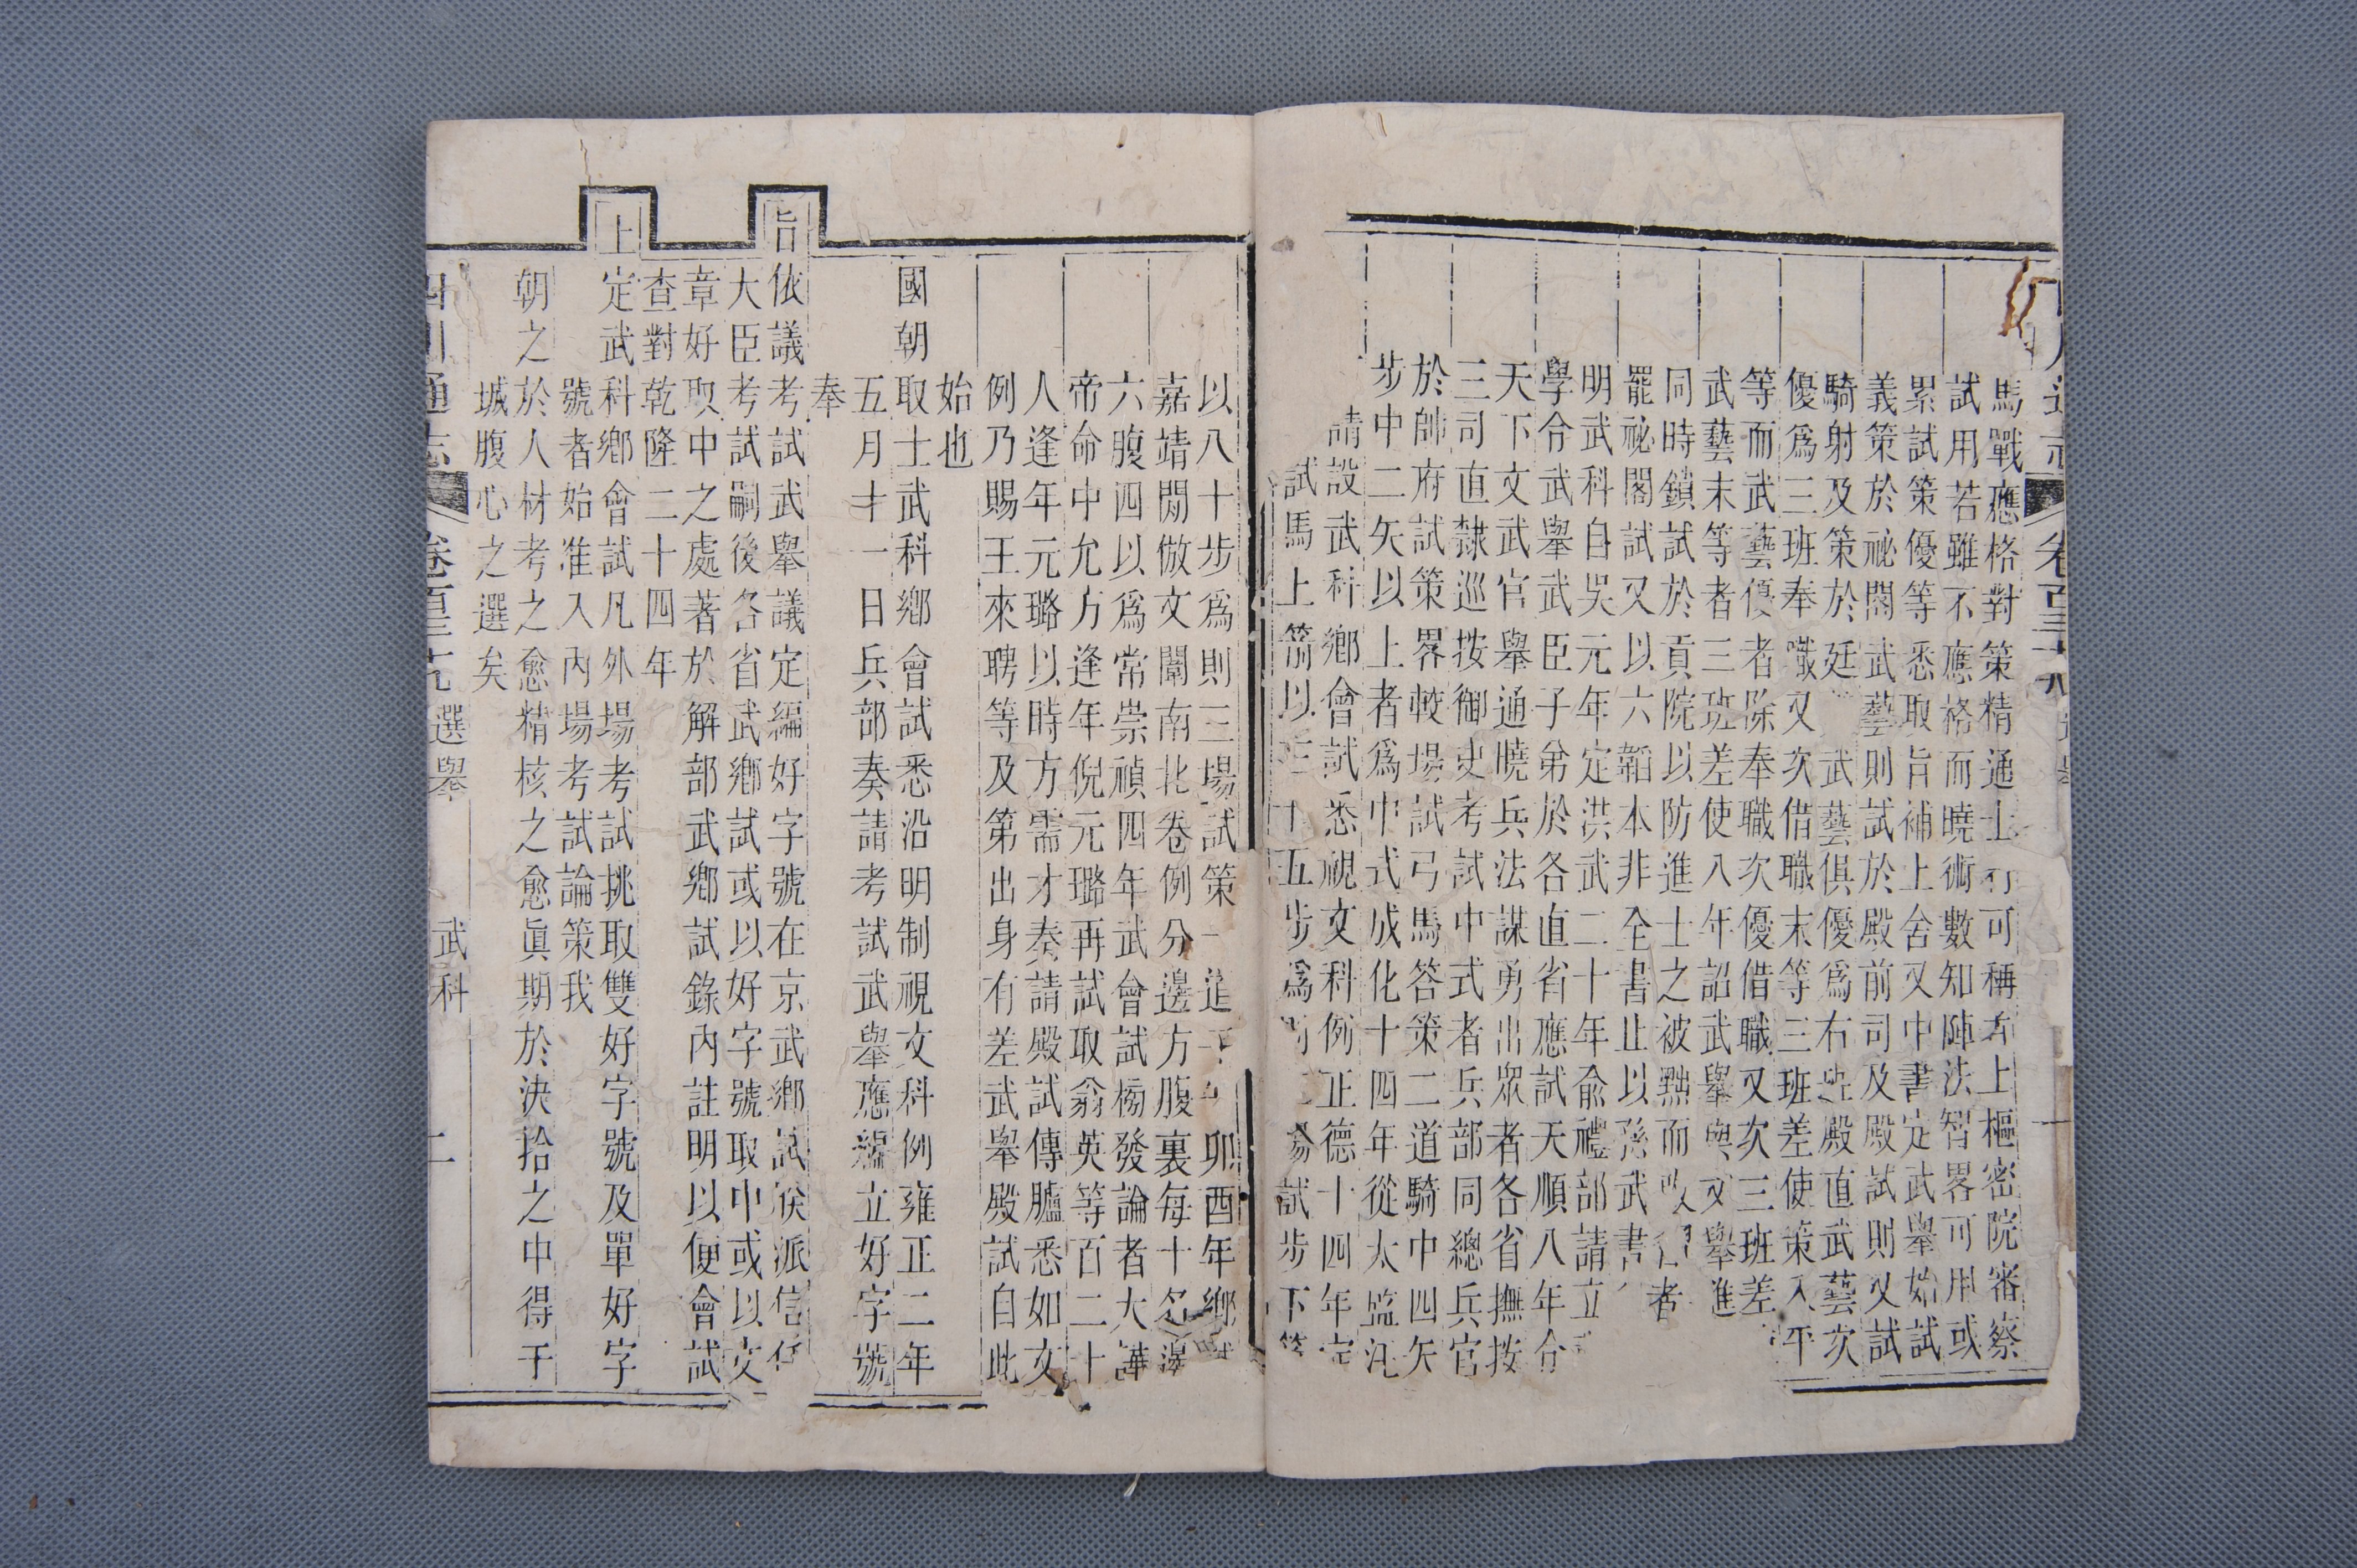 馬戰應格對策精通士可稱者上樞密院審察
試用若雖不應格而曉術數知陣法智畧可用或
累試策優等悉取旨補上舍又中書定武舉始試
義策於祕閣武藝則試於殿前司及殿試則又試
騎射及策於廷武藝俱優爲右班殿直武藝次
優爲三班奉職又次借職末等三班差使策入平
等而武藝優者除奉職次優借職又次三班差
武藝末等者三班差使八年詔武舉與文舉進
同時鎖試於貢院以防進士之被黜而改者
罷祕閣試又以六韜本非全書止以孫武書
明武科自吳元年定洪武二十年俞禮部請立
學合武舉武臣子弟於各直省應試天順八年令
天下文武官舉通曉兵法謀勇出眾者各省撫按
三司直隸巡按御史考試中式者兵部同總兵官
於帥府試策畧較場試弓馬答策二道騎中四矢
步中二矢以上者爲中式成化十四年從太監汪
請設武科鄉會試悉視文科例正德十四年定
試馬上箭以三十五步爲場試步下箭
以八十步爲則三場試策一道卯酉年鄉試
嘉靖間倣文闈南北卷例分邊方腹裏每十名邊
六腹四以爲常崇禎四年武會試榜發論者大譁
帝命中允方逢年倪元璐再試取翁英等百二十
人逢年元璐以時方需才奏請殿試傳臚悉如文
例乃賜王來聘等及第出身有差武舉殿試自此
始也
國朝取士武科鄉會試悉沿明制視文科例雍正二年
五月十一日兵部奏請考試武舉應編立好字號
奉
旨依議考試武舉議定編好字號在京武鄉試候派信任
大臣考試嗣後各省武鄉試或以好字號取中或以文
章好取中之處著於解部武鄉試錄內註明以便會試
查對乾隆二十四年
上定武科鄉會試凡外場考試挑取雙好字號及單好字
號者始准入內場考試論策我
朝之於人材考之愈精核之愈眞期於決拾之中得干
城腹心之選矣
四川通志 卷百三十九 選舉 武科 二